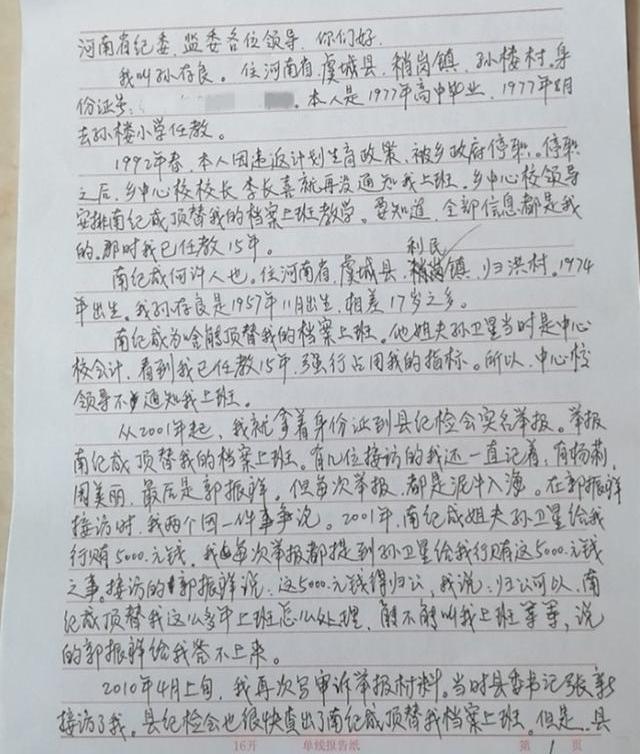 河南省纪委、监委各位领导，你们好，
我叫孙存良。住河南省，虞城县，稍岗镇，孙楼村，身
份证号：. 本人是1977年高中毕业，1977年8月
去孙楼小学任教。
1992年春，本人因违返计划生育政策，被乡政府停职。停职
之后，乡中心校校长李长喜就再没通知我上班。乡中心校领导
安排南纪成顶替我的档案上班教学。要知道，全部信息都是我
的。那时我已任教15年。
利民
南纪成何许人也。住河南省，虞城县，稍岗镇，归洪村。1974
年出生。我孙存良是1957年11月出生，相差17岁之多。
南纪成为啥能顶替我的档案上班。他姐夫孙卫星当时是中心
校会计，看到我已任教15年，强行占用我的指标。所以，中心校
领导不通知我上班。
从2001年起，我就拿着身份证到县纪检会实名举报。举报
南纪成顶替我的档案上班。有几位接访的我还一直记着，有杨莉，
周美丽，最后是郭振祥。但每次举报，都是泥牛入海。在郭振祥
接访时，我两个同一件事争说。2001年，南纪成姐夫孙卫星给我
行贿5000.元钱，我每次举报都提到孙卫星给我行贿这5000.元钱
之事。接访的郭振祥说：这5000.元钱得归公，我说：归公可以，南
纪成顶替我这么多年上班怎么处理，能不能叫我上班等等，说
的郭振祥给我答不上来。
2010年4月上旬，我再次写申诉举报材料。当时县委书记张
接访了我。县纪检会也很快查出了南纪成顶替我档案上班。但是，县
16开 单线报告纸 第 1 页